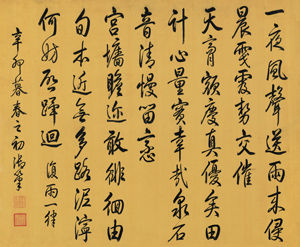 一夜風聲送雨来侵
晨霎勢交催
天膏額慶真優矣田
計心量實幸哉泉石
音清慢留
宮墻瞻迩敢徘徊由
旬本近無多路泥濘
何妨迴 復雨一律
辛卯暮春之初御筆